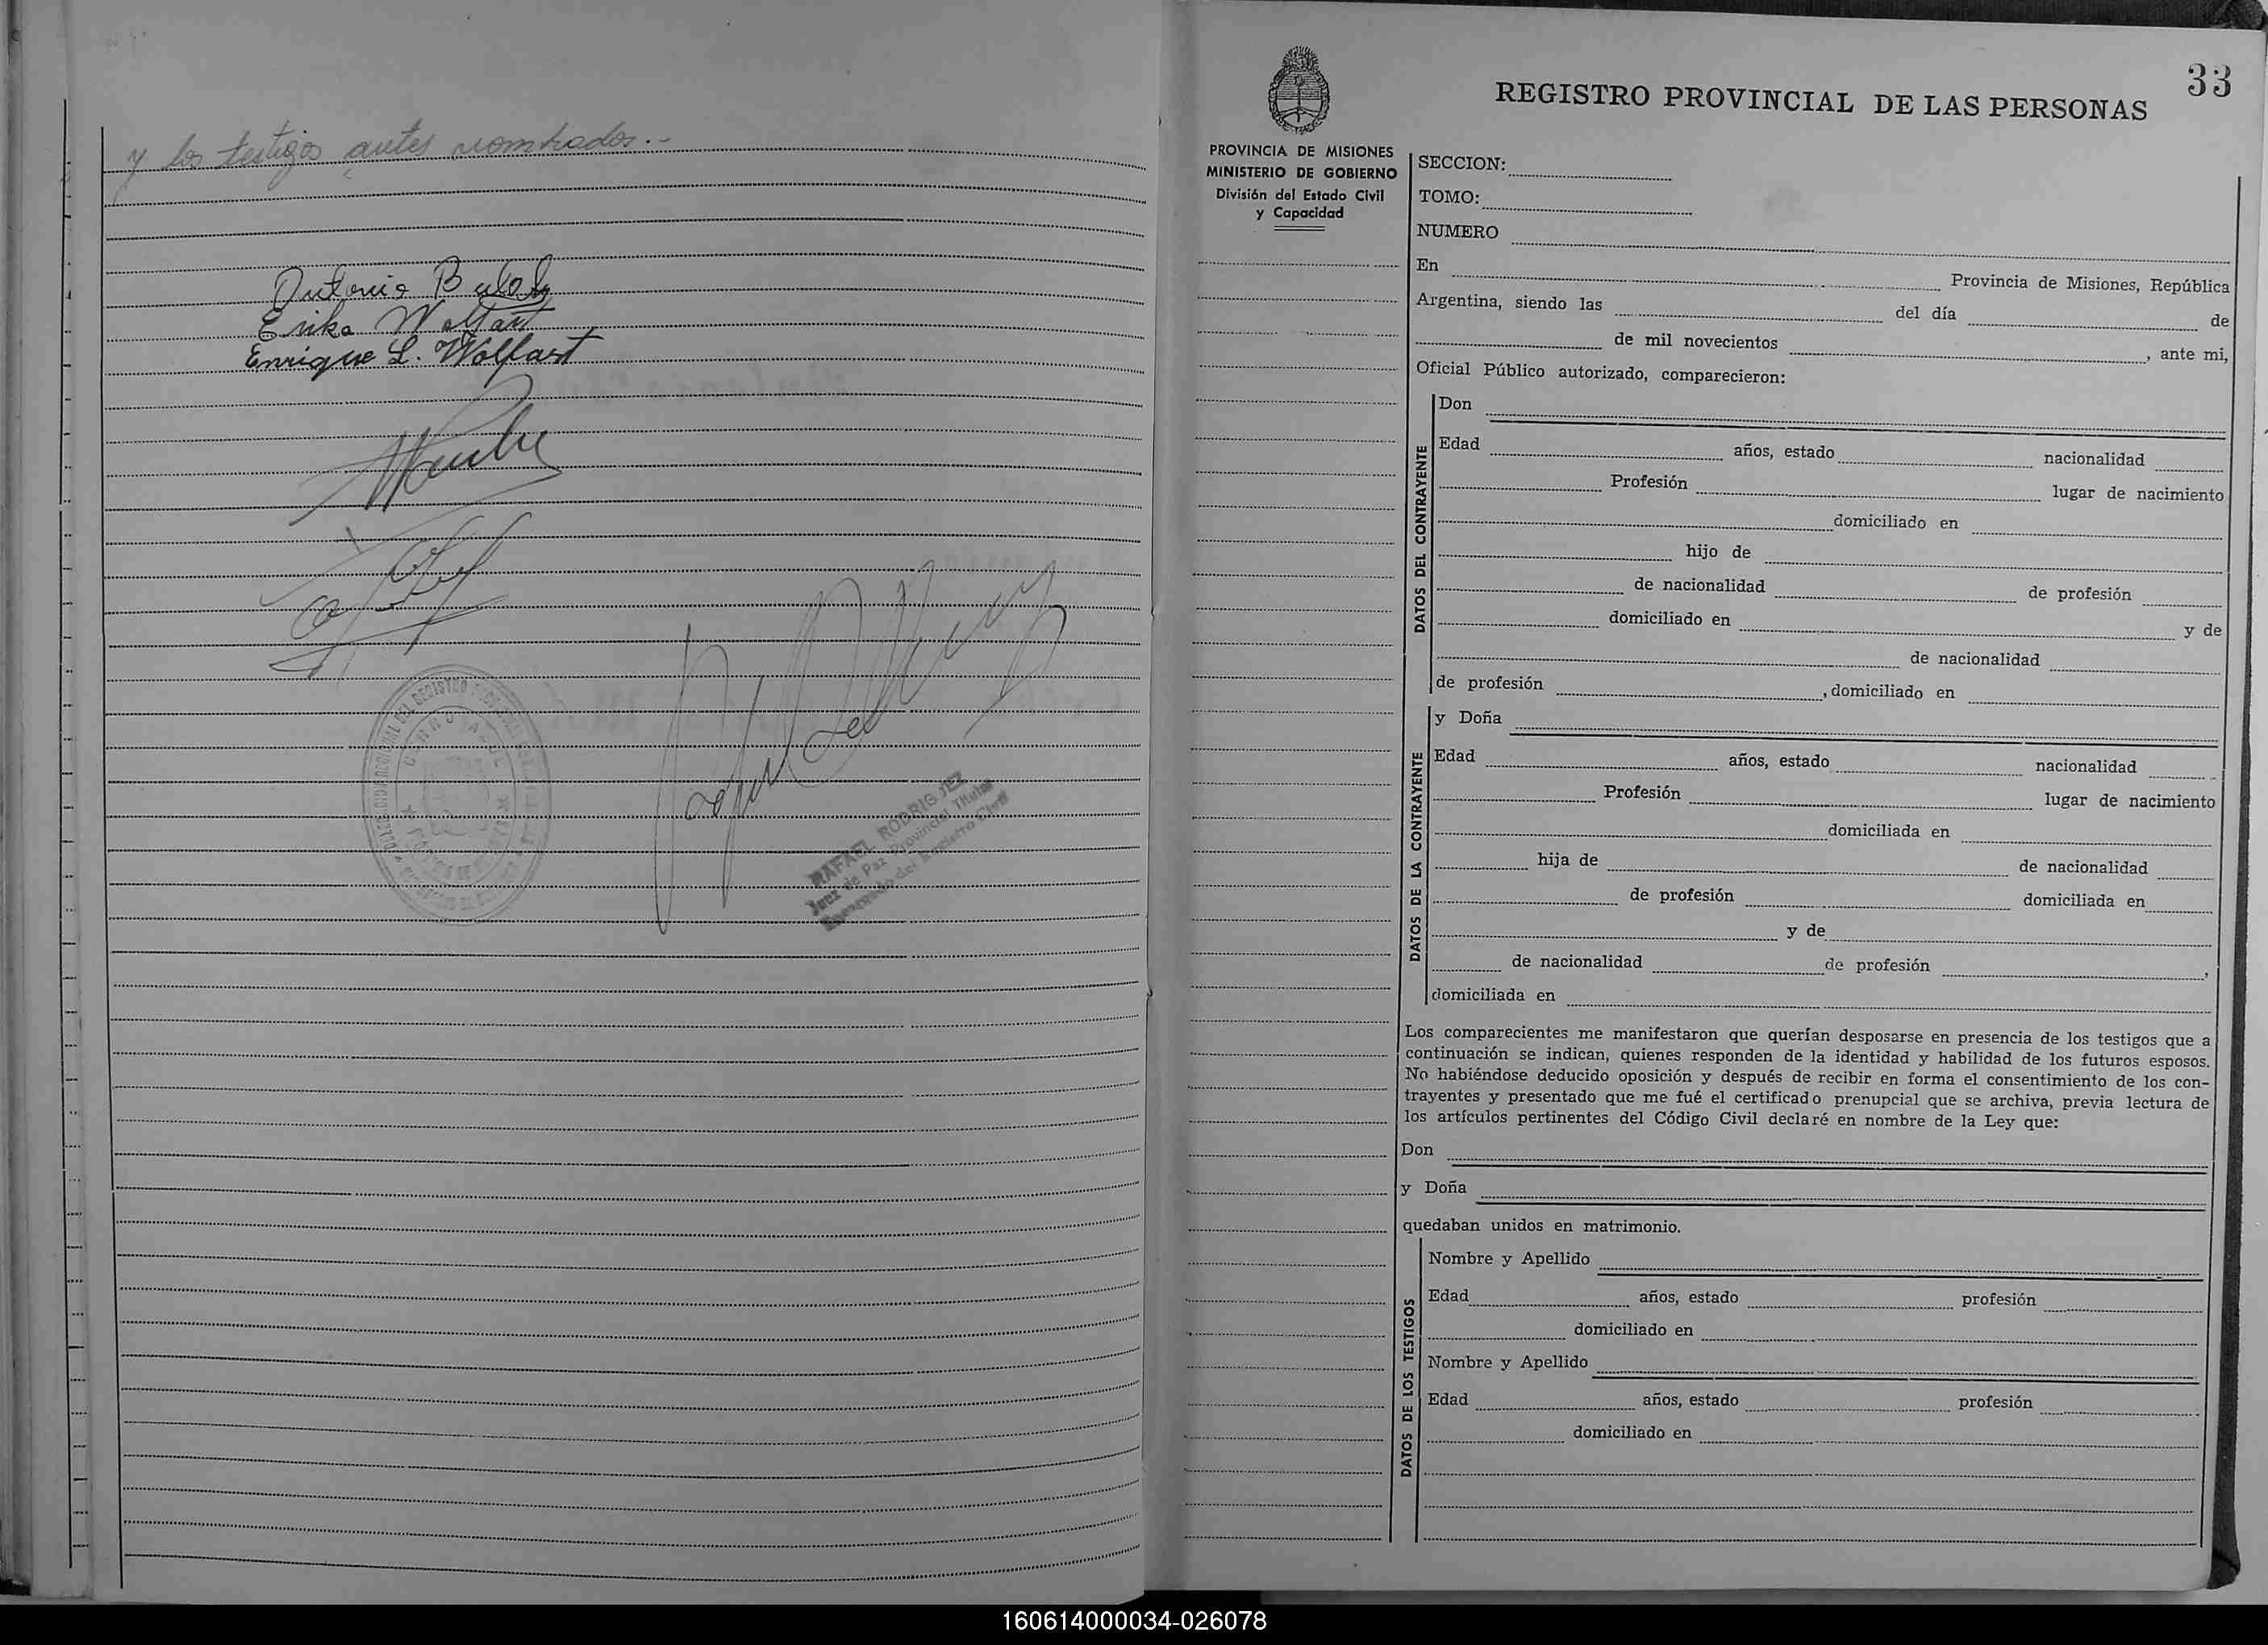 y los testigos antes nombrados.-
Antonio
Erika Wolfart
Enrique L. Wolfart
CERRO AZUL
RAFAEL RODRIGUEZ
Juez de Paz Provincial Titular
Encargado del Registro Civil
33
REGISTRO PROVINCIAL DE LAS PERSONAS
PROVINCIA DE MISIONES
MINISTERIO DE GOBIERNO
División del Estado Civil
y Capacidad
SECCION:
TOMO:
NUMERO
En Provincia de Misiones, República
Argentina, siendo las del día de
de mil novecientos , ante mi,
Oficial Público autorizado, comparecieron:
DATOS DEL CONTRAYENTE
Don
Edad años, estado nacionalidad
Profesión lugar de nacimiento
domiciliado en
hijo de
de nacionalidad de profesión
domiciliado en y de
de nacionalidad
de profesión , domiciliado en
DATOS DE LA CONTRAYENTE
y Doña
Edad años, estado nacionalidad
Profesión lugar de nacimiento
domiciliada en
hija de de nacionalidad
de profesión domiciliada en
y de
de nacionalidad de profesión ,
domiciliada en
Los comparecientes me manifestaron que querían desposarse en presencia de los testigos que a
continuación se indican, quienes responden de la identidad y habilidad de los futuros esposos.
No habiéndose deducido oposición y después de recibir en forma el consentimiento de los con-
trayentes y presentado que me fué el certificado prenupcial que se archiva, previa lectura de
los artículos pertinentes del Código Civil declaré en nombre de la Ley que:
Don
y Doña
quedaban unidos en matrimonio.
DATOS DE LOS TESTIGOS
Nombre y Apellido
Edad años, estado profesión
domiciliado en
Nombre y Apellido
Edad años, estado profesión
domiciliado en
160614000034-026078